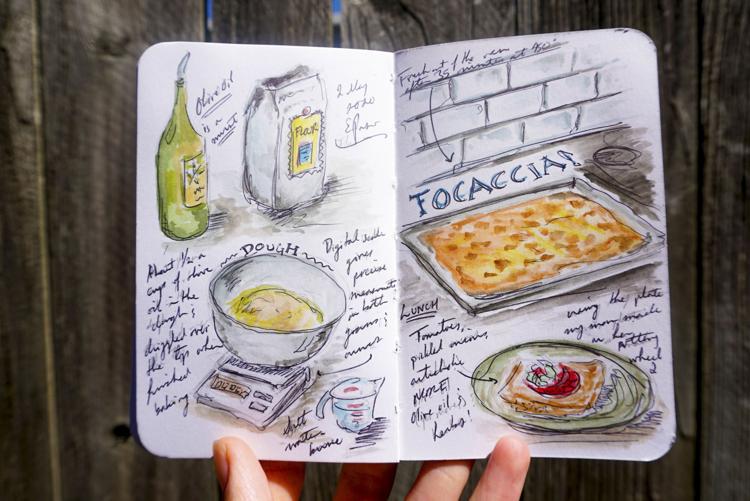 Olive Oil
is a
must
FLOUR
2 May
2020
El Paso
DOUGH
About 1/2 a
cup of olive
oil in the
dough &
drizzled over
the top when
finished
baking
Digital scale
gives
precise
measurements
in both
grams &
ounces
Salt
water
Fresh out of the oven
after minutes at 450°
FOCACCIA!
LUNCH
Tomatoes,
pickled onions,
artichoke
MORE!
Olive oil &
herbs!
using the plate
my mom made
on her
pottery
wheel